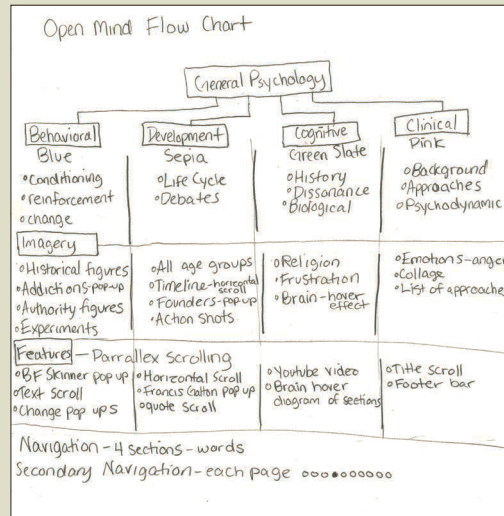 Open Mind Flow Chart
General Psychology
Behavioral
Blue
Conditioning
reinforcement
change
Development
Sepia
Life Cycle
Debates
Cognitive
Green Slate
History
Dissonance
Biological
Clinical
Pink
Background
Approaches
Psychodynamic
Imagery
Historical figures
Addictions-pop up
Authority figures
Experiments
All age groups
Timeline-horizontal
scroll
Founders-pop up
Action shots
Religion
Frustration
Brain-hover
effect
Emotions-anger
Collage
List of approaches
Features - Parrallex Scrolling
BF Skinner pop up
Text scroll
Change pop ups
Horizontal Scroll
Francis Galton pop up
quote scroll
Youtube video
Brain hover
diagram of sections
Title scroll
Footer bar
Navigation - 4 sections - words
Secondary Navigation - each page